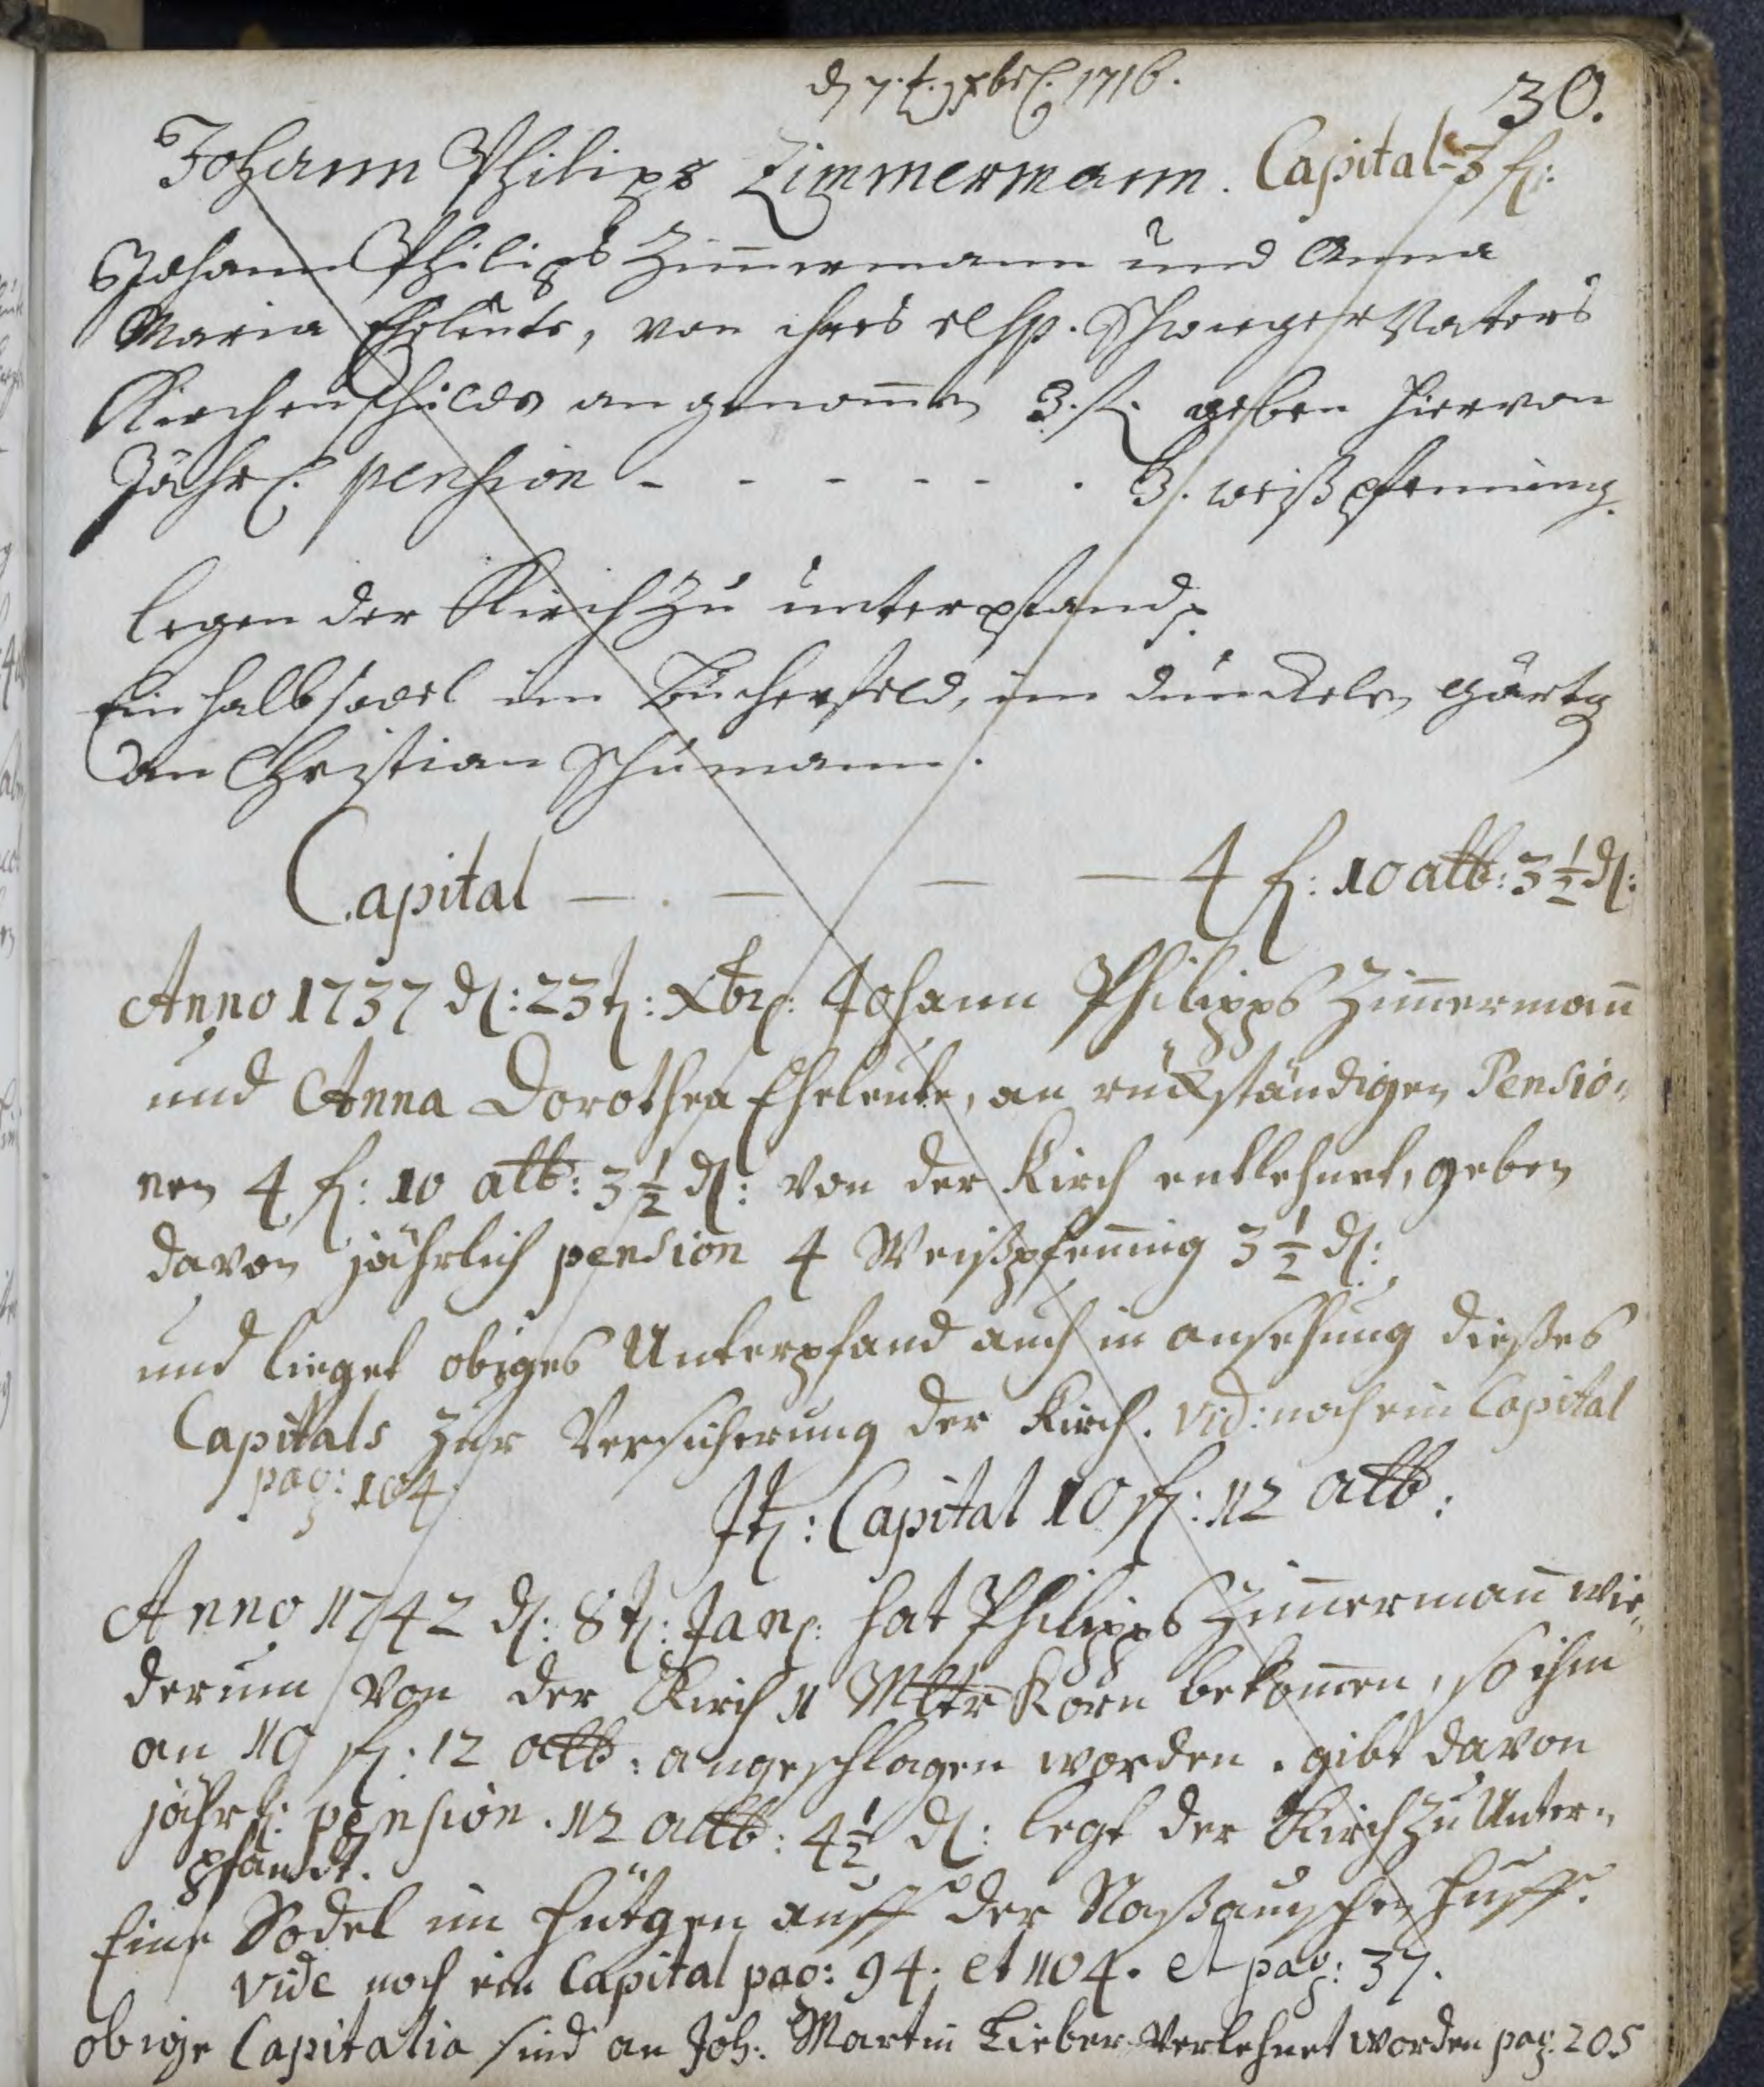 d 7.t. 1716.
30.
Johann Philips Zimmermann. Capital 3 fl:
Johann Philips Zimmermann und Anna
Maria Eheleute, von ihres Schwieger Vaters
Kirchen schulde angenom̅en 3. fl. geben hiervon
Jährl. pension - - - - - - . 3. weißpfenning.
legen der Kirch zu unterpfand.
Ein halb sodel im Bücherfeld, im dunckeln gärtg
an Christian Schumann.
Capital — . — — — 4 fl: 10 alb: 3½ d:
Anno 1737 d: 23t: Xbr: Johann Philipps Zim̅erman̅
und Anna Dorothea Eheleute, an rückständigen Pensio,,
nen 4 fl: 10 alb: 3½ d: von der Kirch entlehnet, geben
davon jährlich pension 4 Weißpfen̅ig 3½ d:
und lieget obiges Unterpfand auch in ansehung dießes
Capitals zur Versicherung der Kirch. vid: noch ein Capital
pag: 104.
It: Capital 10 fl: 12 alb:
Anno 1742 d: 8t: Jan: hat Philipps Zim̅erman̅ wie,,
derum von der Kirch Mltr Korn bekom̅en, so ihm
an 10 fl: 12 alb: angeschlagen worden. gibt davon
jährl: pension. 12 alb: 4½ d: legt der Kirch zu Unter,,
pfandt.
Eine Sodel im auff der Naßauischen Huff.
vide noch ein Capital pag: 94. et 104. et pag: 37.
obige Capitalia sind an Joh: Martin Lieber verlehnet worden pag. 205